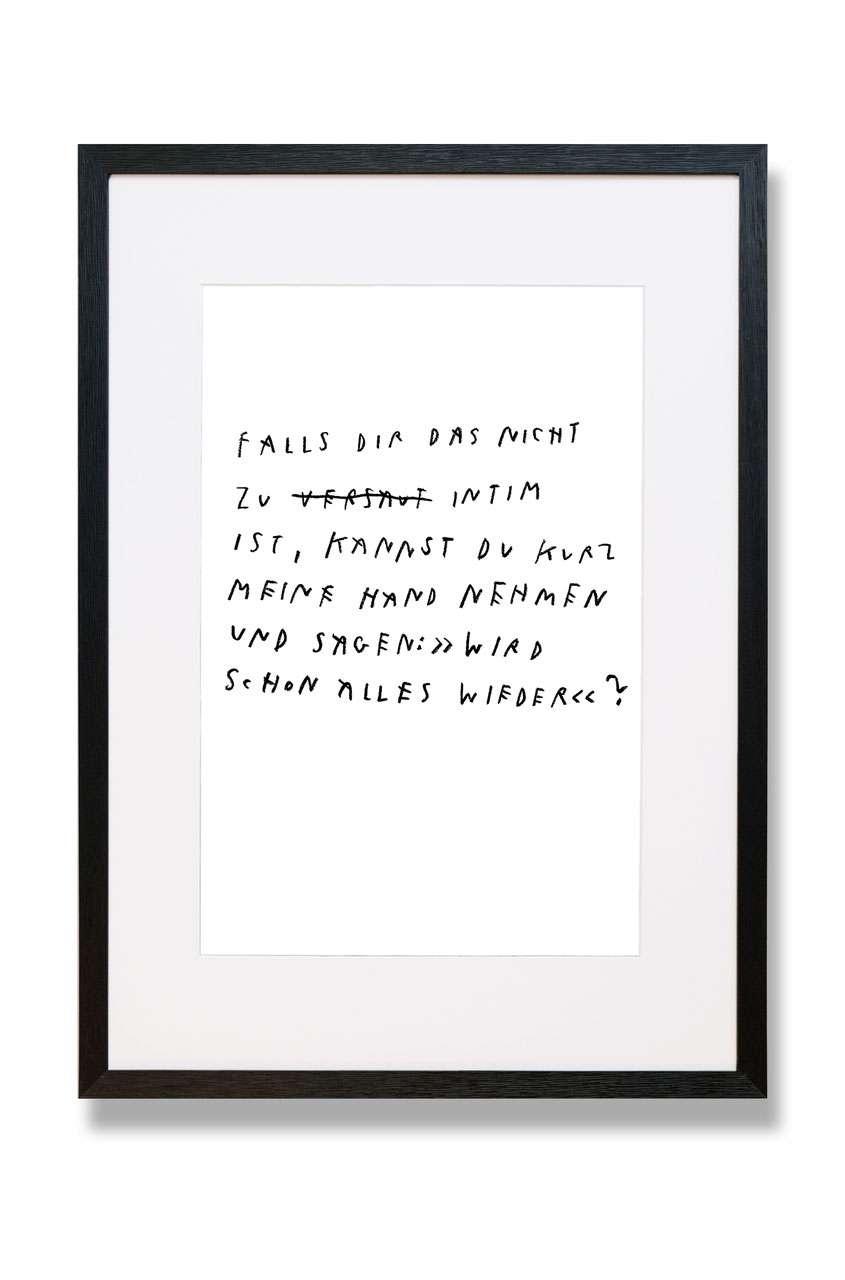 FALLS DIR DAS NICHT
ZU VERSAUT INTIM
IST, KANNST DU KURZ
MEINE HAND NEHMEN
UND SAGEN: »WIRD
SCHON ALLES WIEDER«?